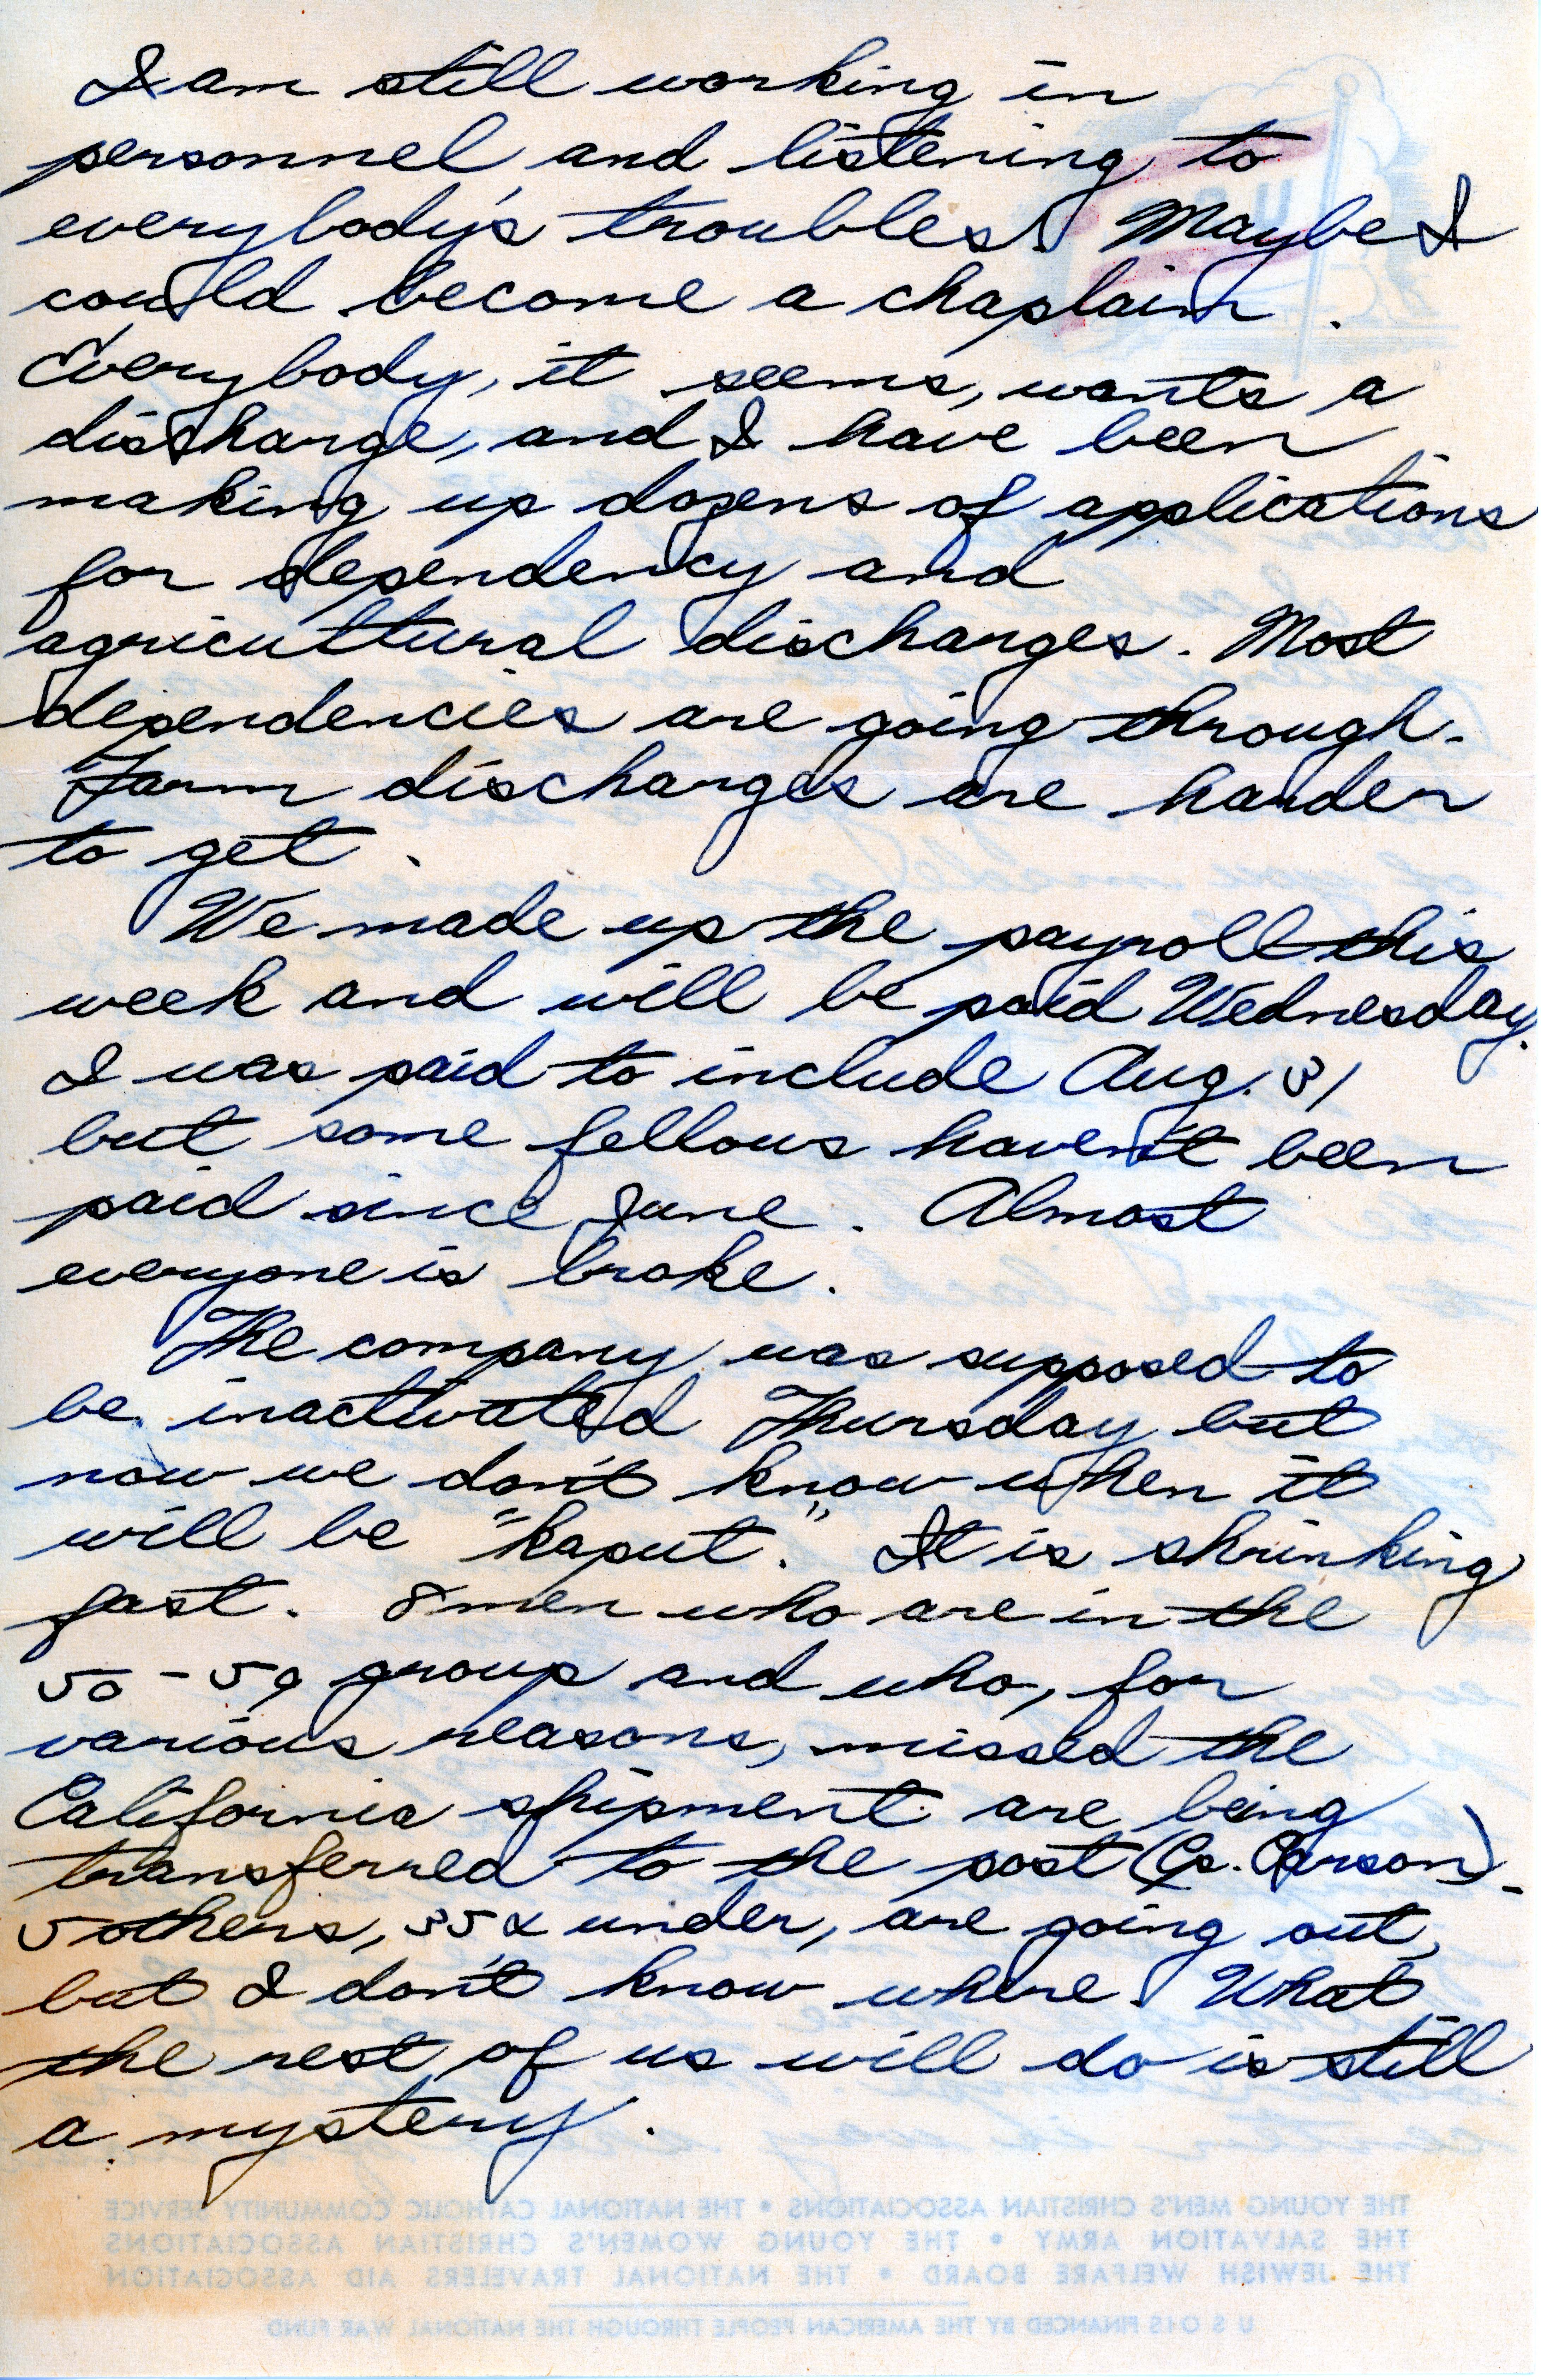 I am still working in
personnel and listening to
everybody's troubles. Maybe I
could become a chaplain.
Everybody, it seems, wants a
discharge, and I have been
making up dozens of applications
for dependency and
agricultural discharges. Most
dependencies are going through.
Farm discharges are harder
to get.
We made up the payroll this
week and will be paid Wednesday.
I was paid to include Aug. 31
but some fellows haven't been
paid since June. Almost
everyone is broke.
The company was supposed to
be inactivated Thursday but
now we don't know when it
will be "kaput." It is shrinking
fast. 8 men who are in the
50-59 group and who, for
various reasons, missed the
California shipment are being
transferred to the post (Cp. Carson).
5 others, 35 & under, are going out,
but I don't know where. What
the rest of us will do is still
a mystery.
THE YOUNG MEN'S CHRISTIAN ASSOCIATIONS • THE NATIONAL CATHOLIC COMMUNITY SERVICE
THE SALVATION ARMY • THE YOUNG WOMEN'S CHRISTIAN ASSOCIATIONS
THE JEWISH WELFARE BOARD • THE NATIONAL TRAVELERS AID ASSOCIATION
U S O IS FINANCED BY THE AMERICAN PEOPLE THROUGH THE NATIONAL WAR FUND